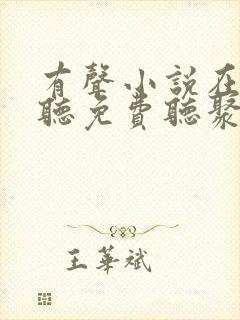 有聲小說在
聽免費聽聚
王華斌